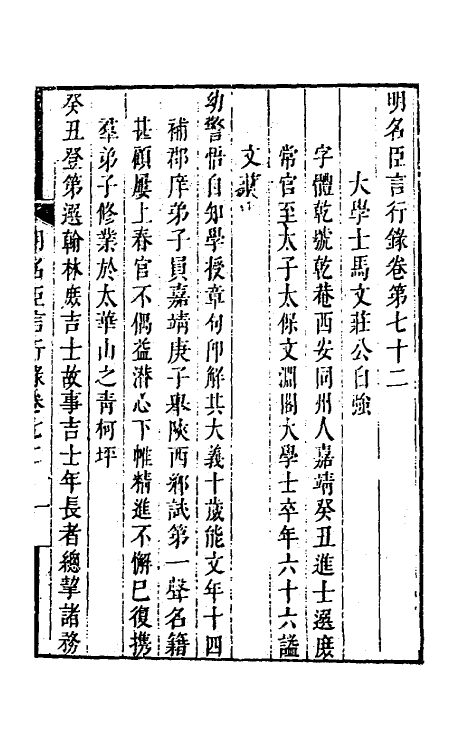 明名臣言行錄卷第七十二
大學士馬文莊公自強
字體乾號乾菴西安同州人嘉靖癸丑進士選庶
常官至太子太保文淵閣大學士卒年六十六謚
文莊
幼警悟自知學授章句即解其大義十歲能文年十四
補郡庠弟子員嘉靖庚子舉陝西鄉試第一聲名籍
甚顧屢上春官不偶益潛心下帷精進不懈已復携
羣弟子修業於太華山之青柯坪
癸丑登第選翰林庶吉士故事吉士年長者總挈諸務
明名臣言行錄卷七十二 一